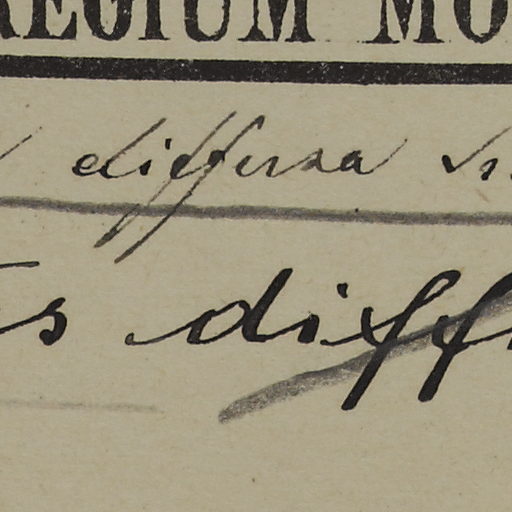 REGIUM MO
differsa
s diff